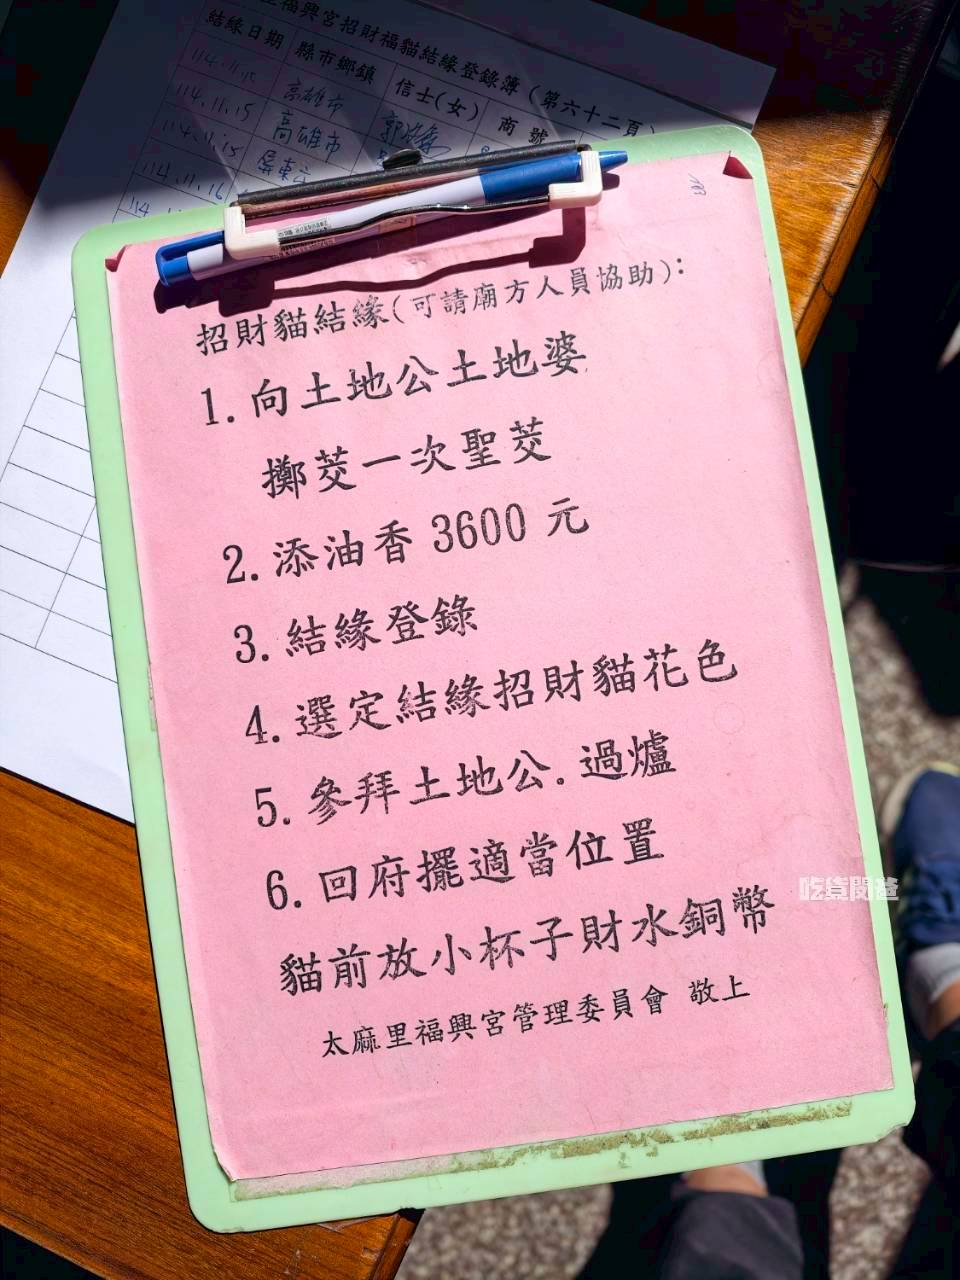 福興宮招財福貓結緣登錄簿(第六十二頁)
結緣日期 縣市鄉鎮 信士(女) 商號
114.11.15 高雄市
114.11.15 高雄市
114.11.15 屏東
114.11.16
114.
招財貓結緣(可請廟方人員協助):
1.向土地公土地婆
擲筊一次聖筊
2.添油香 3600 元
3.結緣登錄
4.選定結緣招財貓花色
5.參拜土地公.過爐
6.回府擺適當位置
貓前放小杯子財水銅幣
太麻里福興宮管理委員會 敬上
吃貨閔爸